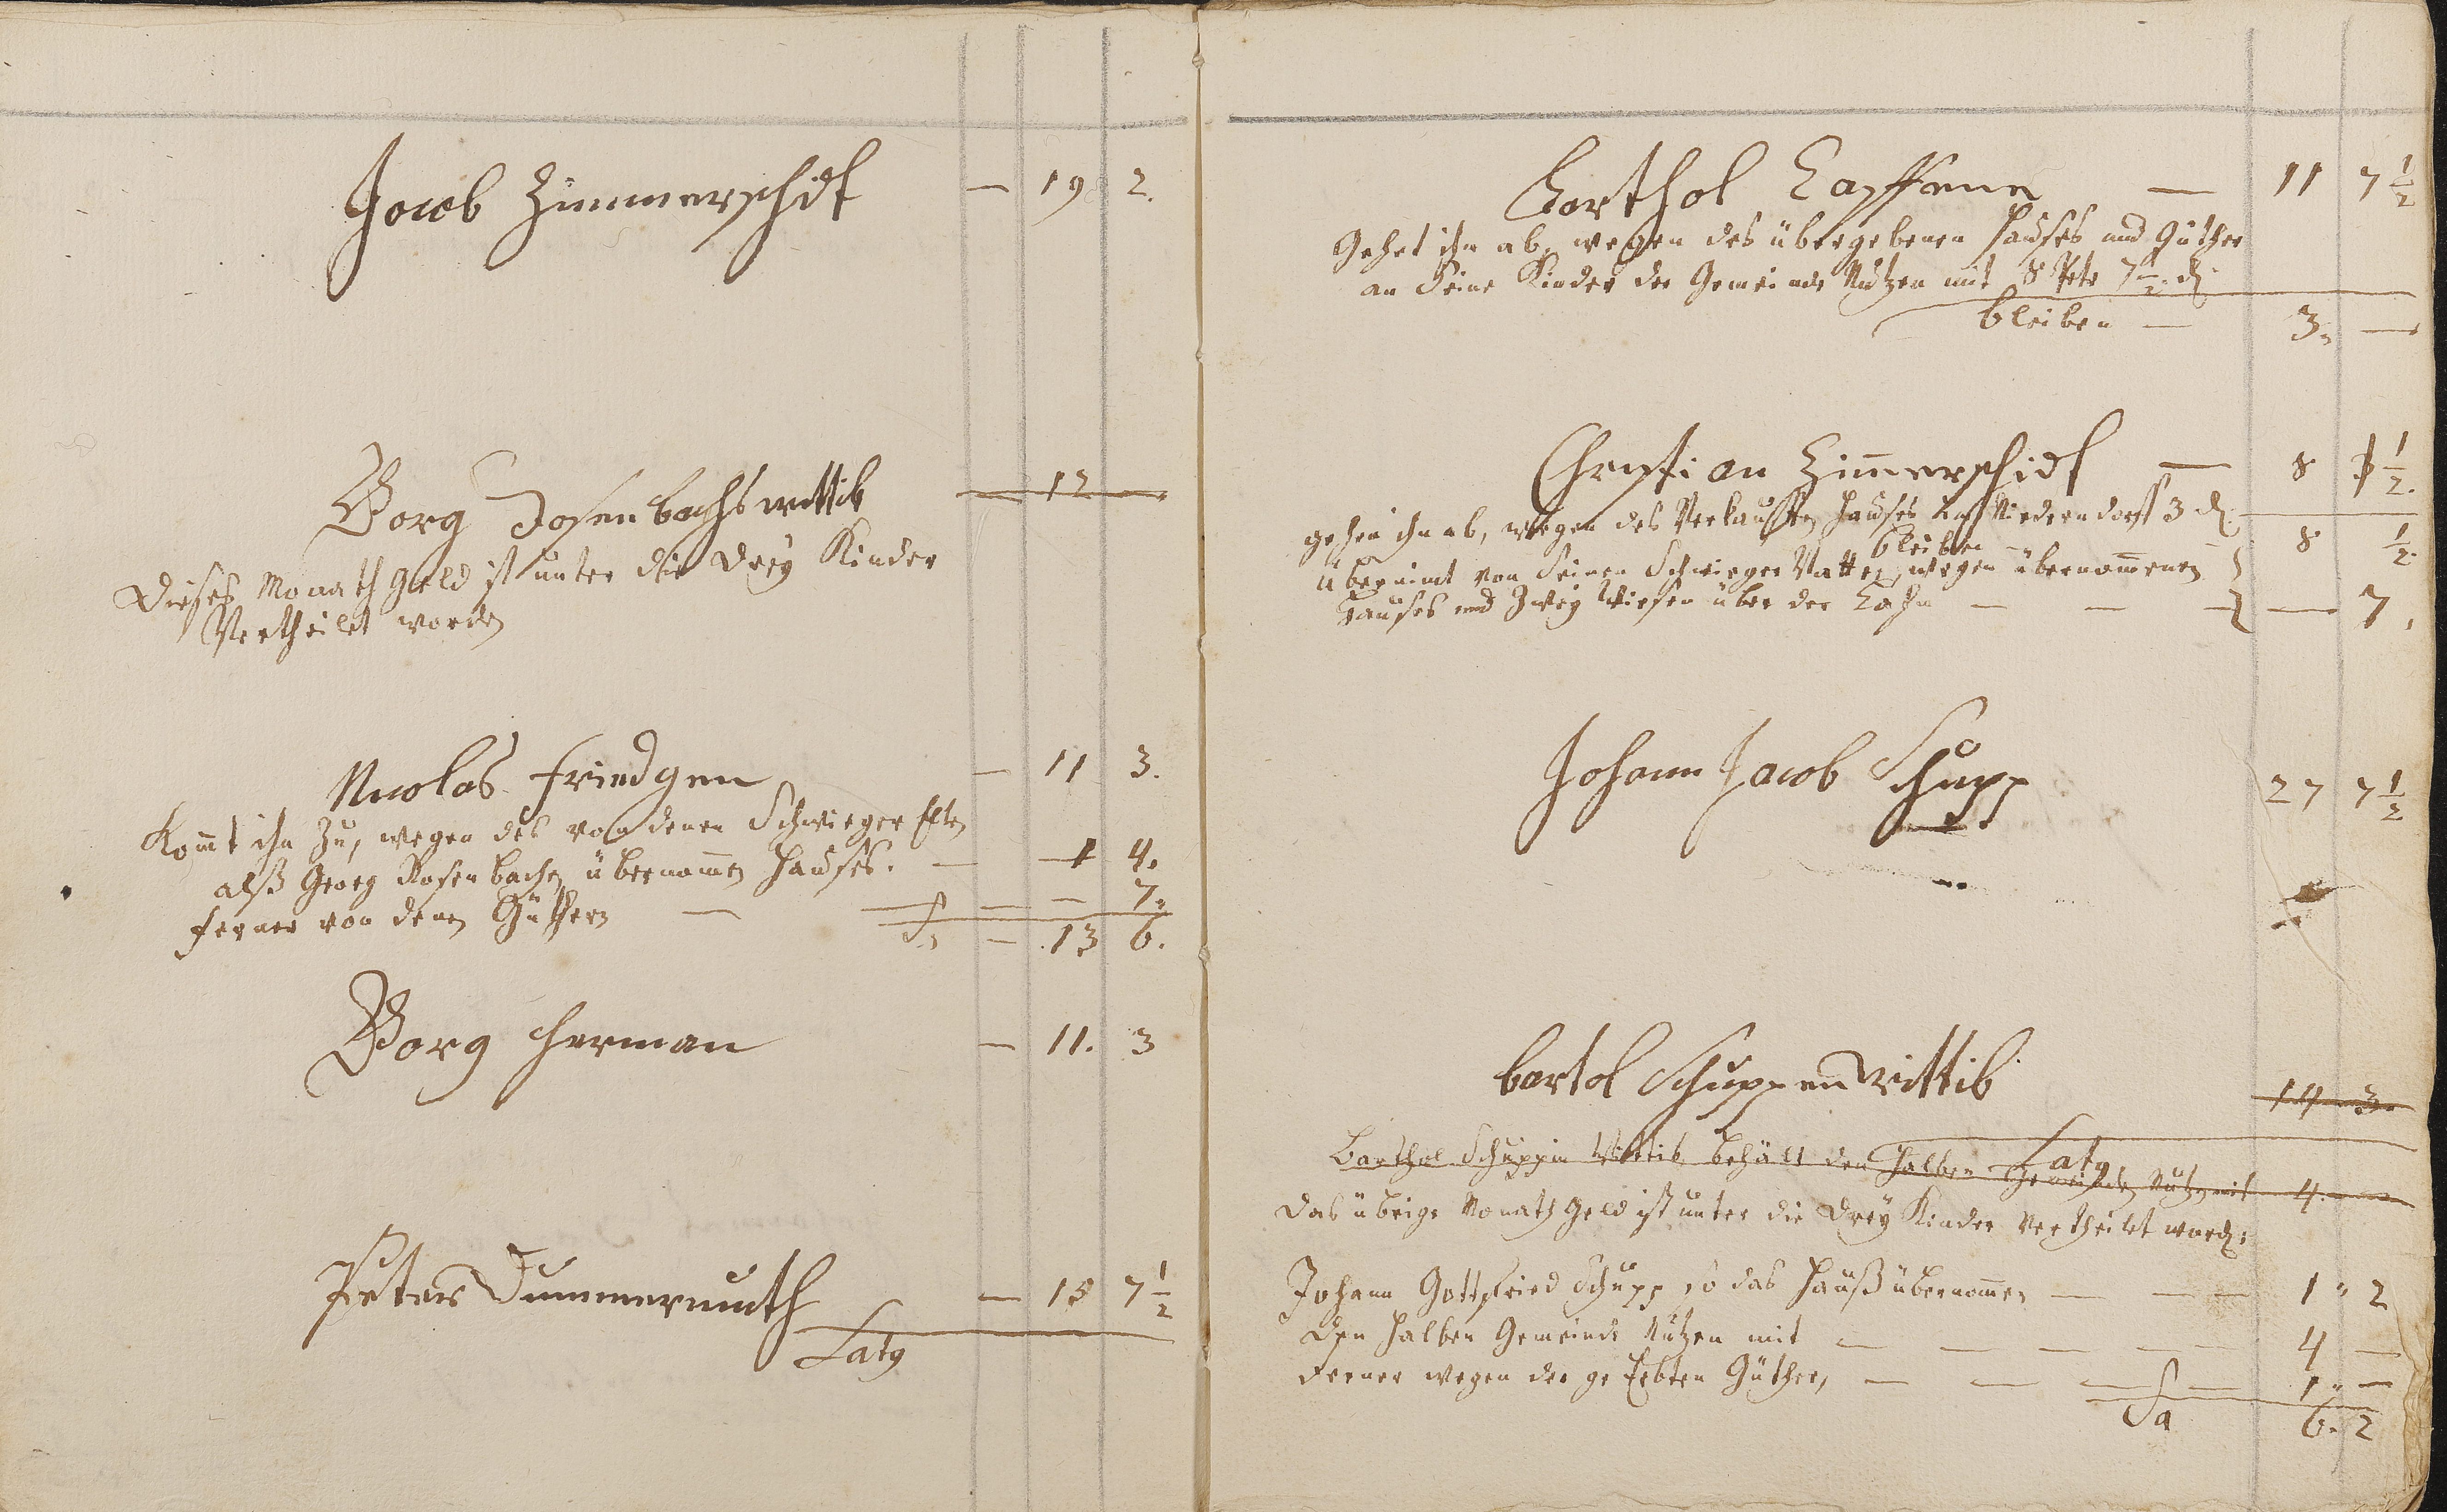 Jacob Zimmerschidt — 19 2.
Georg Dosenbachs wittib — 12 —
Dieses Monath geld ist unter die drey Kinder
Vertheilet worden
Nicolas Friedgen — 11 3.
Komt ihm zu, wegen des von denen Schwieger Elten
alß Georg Rosenbachs übernomen Haußes. — 1 4.
ferner von denen Güthern — — — 7.
Sa — 13 6.
Georg Herman — 11. 3
Peter Dummermuth — 15 7 1/2
Latg
Barthol — 11 7 1/2
Gehet ihm ab, wegen des übergebenen Haußes und Güther
an Seine Kinder der Gemeinde Nutzen mit 8 7 1/2 d
bleiben — 3. —
Christian Zimerschidt — 8 3 1/2.
gehen ihm ab, wegen des Verkaufften Haußes Niederndorff 3 d
bleiben — 8 1/2.
Übernimt von Seinen Schwieger Vatter, wegen übernomenen
Haußes und Zwey Wiesen über der Lahn — — — 7.
Johann Jacob Schupp 27 7 1/2
bartol Schuppen Wittib 14 3.
Latg
Barthol Schuppin Wittib behält den halben Gemeinden Nutzen mit 4. —
Das übrige Monath Geld ist unter die drey Kinder Vertheilet word:
Johann Gottfried Schupp so das Hauß übernomen — — — 1 " 2
Den halben Gemeinde Nutzen mit — — — — — 4 —
Ferner wegen der ge Erbten Güther, — — — — 1 " —
Sa 6. 2